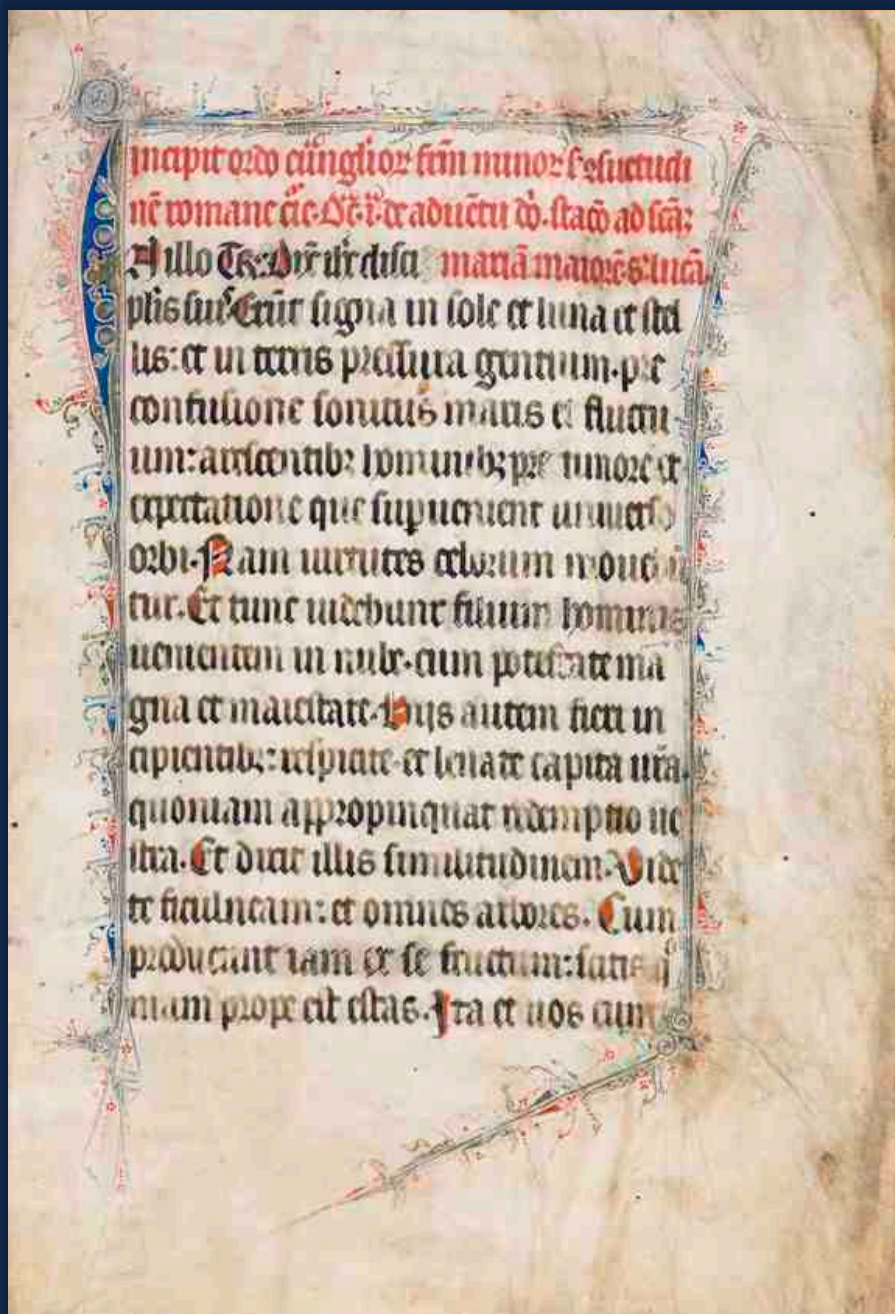 Incipit ordo euāgl̄ior fr̄m minor s̄ɔsuetudi
nē romane ēc̄e. Dn̄. i. de aduētu dō. staō ad sc̄ā;
N illo Tē: Dix̄ ih̄c disci mariā maiorē s̄. lucā.
plis suis Erūt signa in sole et luna et stel
lis: et in terris pressura gentium. pre
confusione sonitus maris et fluctu
um: arescentibꝫ hominibꝫ pre timore et
expectatione que supuenient uniuerso
orbi. Nam uirtutes celorum mouebū
tur. Et tunc uidebunt filium hominis
uenientem in nube. cum potestate ma
gna et maiestate. Hiis autem fieri in
cipientibꝫ: respicite et leuate capita ur̄a.
quoniam appropinquat redemptio ue
stra. Et dixit illis similitudinem. Vide
te ficulneam: et omnes arbores. Cum
producunt iam ex se fructum: scitis q̄
niam prope est estas. Ita et uos cum